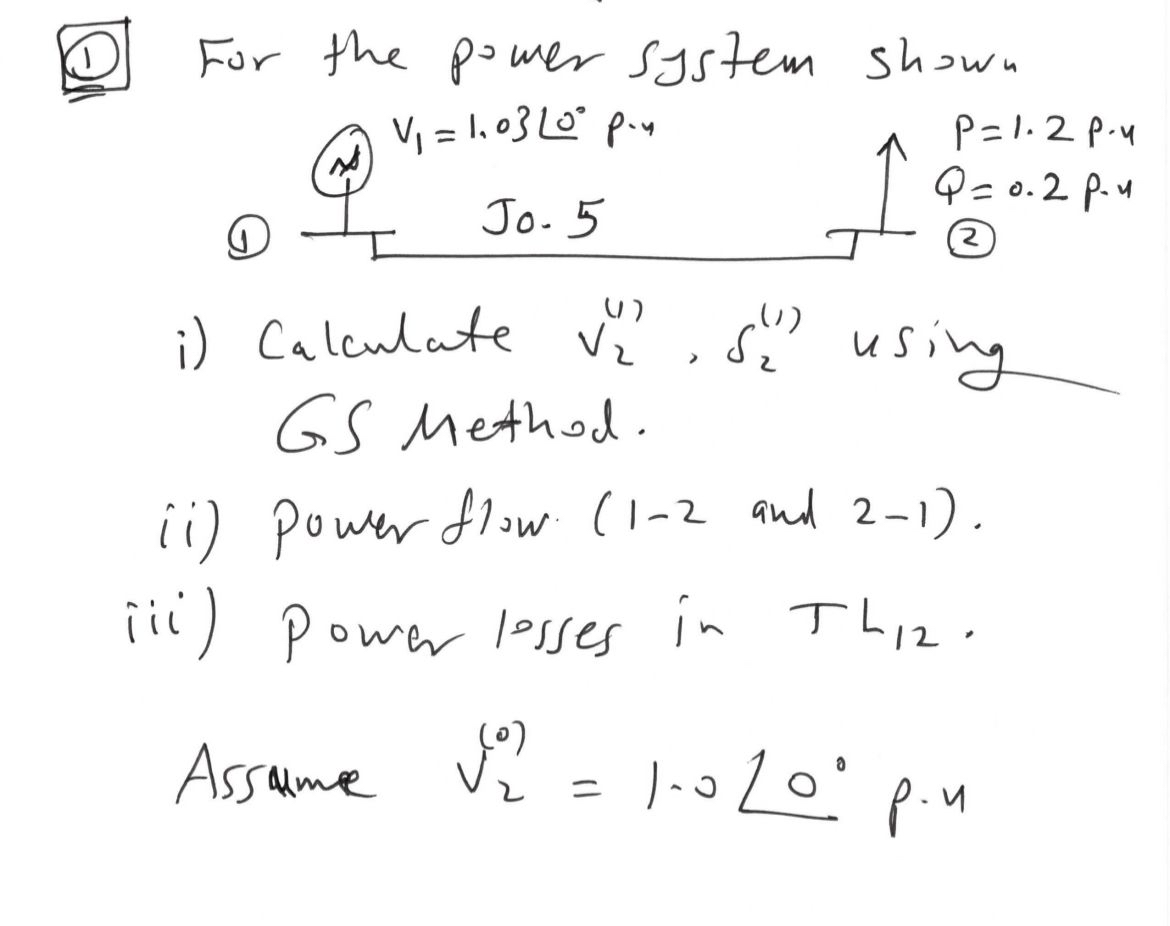 ① For the power system shown
V₁ = 1.03∠0° p.u
P = 1.2 p.u
Q = 0.2 p.u
① J0.5 ②
i) Calculate V₂⁽¹⁾, δ₂⁽¹⁾ using
GS Method.
ii) power flow (1-2 and 2-1).
iii) power losses in TL₁₂.
Assume V₂⁽⁰⁾ = 1.0∠0° p.u